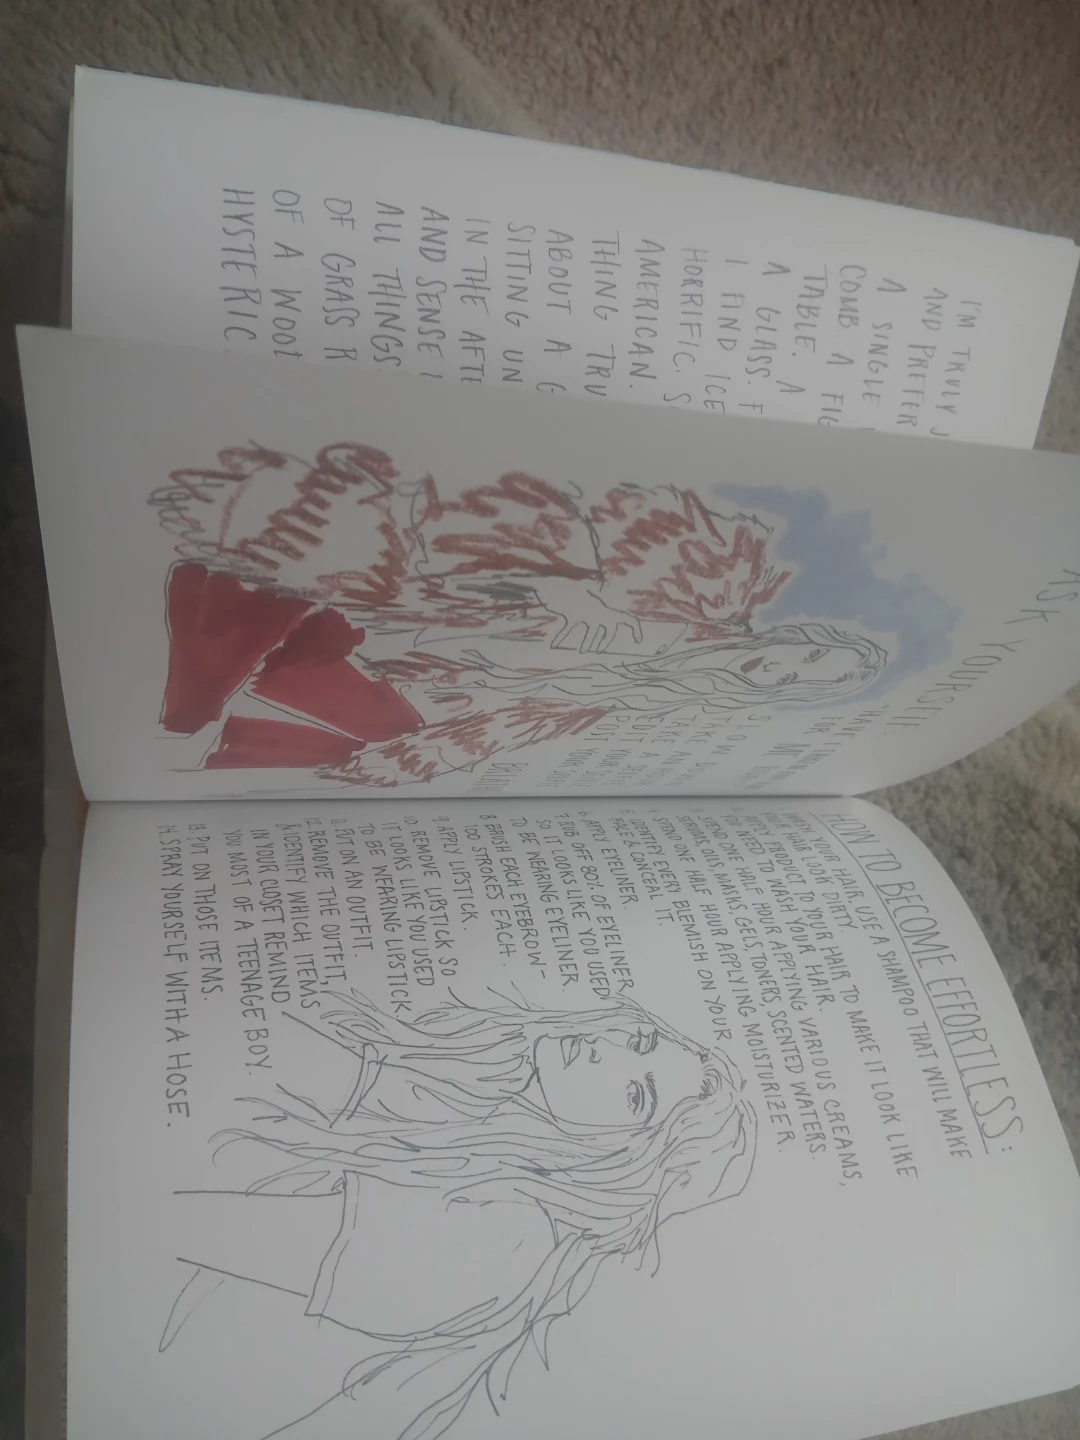 I'M TRULY
AND PREFER
A SINGLE
COMB A FIG
TABLE. A
A GLASS.
I FIND ICE
HORRIFIC.
AMERICAN.
THING TRU
ABOUT A G
SITTING UN
IN THE AFTE
AND SENSE
ALL THINGS
OF GRASS R
OF A WOO
HYSTERIC
ASK YOURSELF:
"HAVE I
FOR
SLOW DOWN
TAKE AN
TAKE A STEP
EDIT YOUR
JUST YOU
HOW TO BECOME EFFORTLESS:
1. WASH YOUR HAIR. USE A SHAMPOO THAT WILL MAKE
YOUR HAIR LOOK DIRTY.
2. APPLY PRODUCT TO YOUR HAIR TO MAKE IT LOOK LIKE
YOU NEED TO WASH YOUR HAIR.
3. SPEND ONE HALF HOUR APPLYING VARIOUS CREAMS,
SERUMS, OILS MASKS, GELS, TONERS, SCENTED WATERS.
4. SPEND ONE HALF HOUR APPLYING MOISTURIZER.
5. IDENTIFY EVERY BLEMISH ON YOUR
FACE & CONCEAL IT.
6. APPLY EYELINER.
7. RUB OFF 80% OF EYELINER
SO IT LOOKS LIKE YOU USED
TO BE WEARING EYELINER.
8. BRUSH EACH EYEBROW –
100 STROKES EACH.
9. APPLY LIPSTICK.
10. REMOVE LIPSTICK SO
IT LOOKS LIKE YOU USED
TO BE WEARING LIPSTICK.
11. PUT ON AN OUTFIT.
12. REMOVE THE OUTFIT,
& IDENTIFY WHICH ITEMS
IN YOUR CLOSET REMIND
YOU MOST OF A TEENAGE BOY.
13. PUT ON THOSE ITEMS.
14. SPRAY YOURSELF WITH A HOSE.